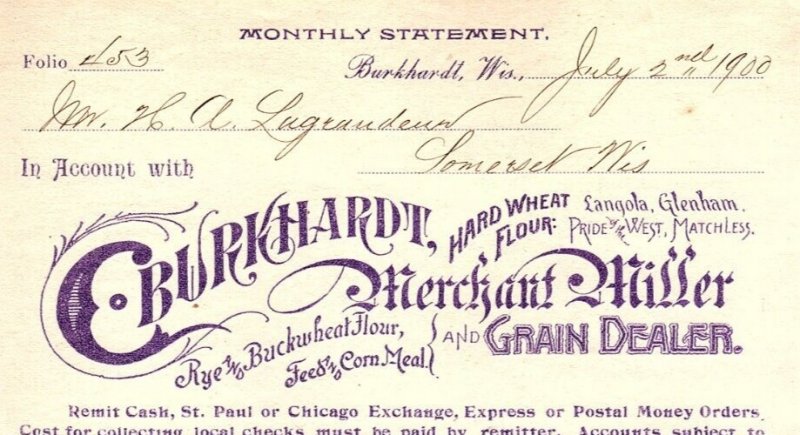 MONTHLY STATEMENT.
Folio 453
Burkhardt, Wis., July 2nd 1900
Mr. H. A. Lagrandeur
Somerset Wis
In Account with
C. BURKHARDT,
HARD WHEAT FLOUR:
Langola, Glenham,
PRIDE OF THE WEST, MATCHLESS.
Merchant Miller
AND GRAIN DEALER.
Rye AND Buckwheat Flour,
Feed AND Corn Meal.
Remit Cash, St. Paul or Chicago Exchange, Express or Postal Money Orders.
Cost for collecting local checks must be paid by remitter. Accounts subject to